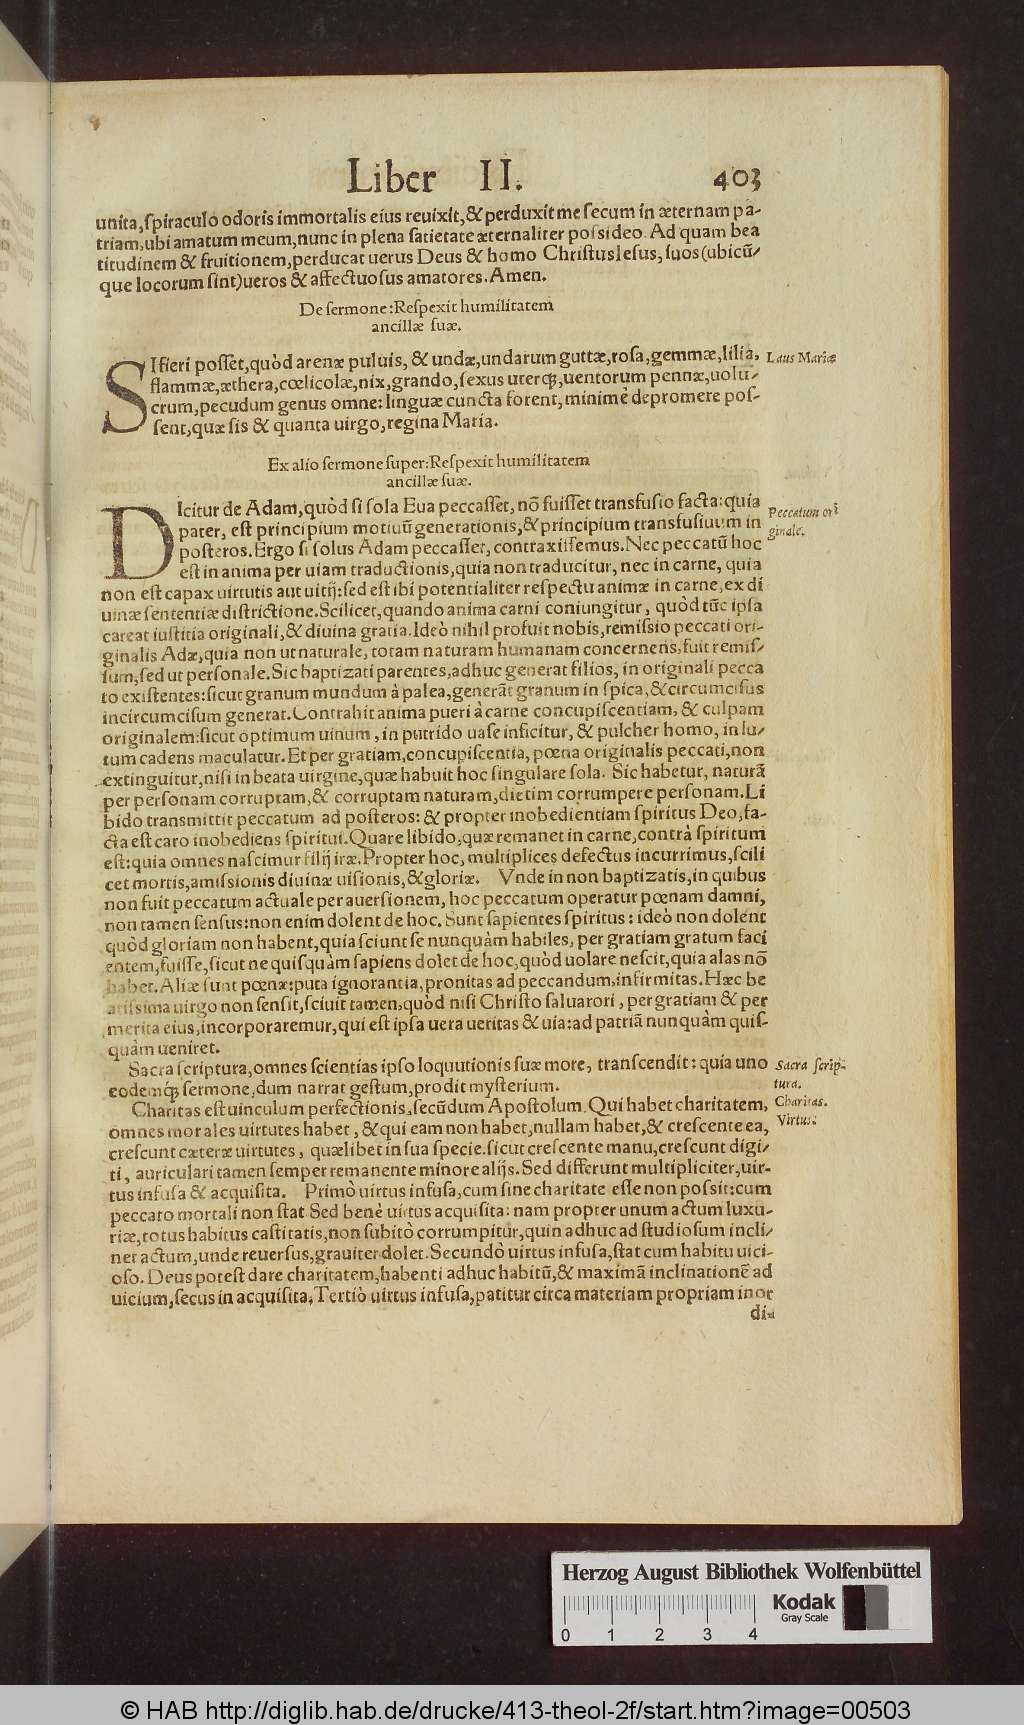 Liber II. 403
unita,ſpiraculo odoris immortalis eius reuixit,& perduxit me ſecum in æternam pa-
triam,ubi amatum meum,nunc in plena ſatietate æternaliter poſsideo. Ad quam bea
titudinem & fruitionem,perducat uerus Deus & homo Chriſtus Ieſus, ſuos (ubicũ/
que locorum ſint)ueros & affectuoſus amatores. Amen.
De ſermone: Reſpexit humilitatem
ancillæ ſuæ.
SI fieri poſſet,quòd arenæ puluis, & undæ,undarum guttæ,roſa,gemmæ,lilia,
Laus Mariæ
flammæ,æthera,cœlicolæ,nix,grando,ſexus uterq;,uentorum pennæ,uolu/
crum,pecudum genus omne: linguæ cuncta forent,minimè depromere poſ-
ſent,quæ ſis & quanta uirgo,regina Maria.
Ex alio ſermone ſuper: Reſpexit humilitatem
ancillæ ſuæ.
DIcitur de Adam,quòd ſi ſola Eua peccaſſet,nõ fuiſſet transfuſio facta: quia
Peccatum ori
pater, eſt principium motiuũ generationis,& principium transfuſiuum in
ginale.
poſteros. Ergo ſi ſolus Adam peccaſſet, contraxiſſemus. Nec peccatũ hoc
eſt in anima per uiam traductionis,quia non traducitur, nec in carne, quia
non eſt capax uirtutis aut uitij: ſed eſt ibi potentialiter reſpectu animæ in carne, ex di
uinæ ſententiæ diſtrictione. Scilicet,quando anima carni coniungitur, quòd tũc ipſa
careat iuſtitia originali,& diuina gratia. Ideò nihil profuit nobis,remiſsio peccati ori-
ginalis Adæ,quia non ut naturale, totam naturam humanam concernens,fuit remiſ/
ſum,ſed ut perſonale. Sic baptizati parentes,adhuc generat filios, in originali pecca
to exiſtentes: ſicut granum mundum à palea,generãt granum in ſpica,& circumciſus
incircumciſum generat. Contrahit anima pueri à carne concupiſcentiam, & culpam
originalem: ſicut optimum uinum, in putrido uaſe inficitur, & pulcher homo, in lu/
tum cadens maculatur. Et per gratiam,concupiſcentia, pœna originalis peccati,non
extinguitur,niſi in beata uirgine,quæ habuit hoc ſingulare ſola. Sic habetur, naturã
per perſonam corruptam,& corruptam naturam,dietim corrumpere perſonam. Li
bido transmittit peccatum ad poſteros: & propter inobedientiam ſpiritus Deo, fa-
cta eſt caro inobediens ſpiritui. Quare libido,quæ remanet in carne,contrà ſpiritum
eſt: quia omnes naſcimur filij iræ. Propter hoc, multiplices defectus incurrimus,ſcili
cet mortis,amiſsionis diuinæ uiſionis,& gloriæ. Vnde in non baptizatis,in quibus
non fuit peccatum actuale per auerſionem, hoc peccatum operatur pœnam damni,
non tamen ſenſus: non enim dolent de hoc. Sunt ſapientes ſpiritus: ideò non dolent
quòd gloriam non habent,quia ſciunt ſe nunquàm habiles, per gratiam gratum faci
entem,fuiſſe,ſicut ne quiſquàm ſapiens dolet de hoc,quòd uolare neſcit,quia alas nõ
habet. Aliæ ſunt pœnæ: puta ignorantia,pronitas ad peccandum,infirmitas. Hæc be
atiſsima uirgo non ſenſit,ſciuit tamen,quòd niſi Chriſto ſaluatori, per gratiam & per
merita eius,incorporaremur,qui eſt ipſa uera ueritas & uia: ad patriã nunquàm quiſ-
quàm ueniret.
Sacra ſcriptura,omnes ſcientias ipſo loquutionis ſuæ more, tranſcendit: quia uno
Sacra ſcrip-
eodemq́; ſermone,dum narrat geſtum,prodit myſterium.
tura.
Charitas eſt uinculum perfectionis,ſecũdum Apoſtolum. Qui habet charitatem,
Charitas.
omnes morales uirtutes habet, & qui eam non habet,nullam habet,& creſcente ea,
Virtus:
creſcunt cæteræ uirtutes, quælibet in ſua ſpecie. ſicut creſcente manu,creſcunt digi/
ti, auriculari tamen ſemper remanente minore alijs. Sed differunt multipliciter,uir-
tus infuſa & acquiſita. Primò uirtus infuſa,cum ſine charitate eſſe non poſsit: cum
peccato mortali non ſtat Sed benè uirtus acquiſita: nam propter unum actum luxu-
riæ,totus habitus caſtitatis,non ſubitò corrumpitur,quin adhuc ad ſtudioſum incli/
net actum,unde reuerſus,grauiter dolet. Secundò uirtus infuſa,ſtat cum habitu uici-
oſo. Deus poteſt dare charitatem,habenti adhuc habitũ,& maximã inclinationẽ ad
uicium,ſecus in acquiſita. Tertiò uirtus infuſa,patitur circa materiam propriam inor
di-
Herzog August Bibliothek Wolfenbüttel
Kodak
Gray Scale
0 1 2 3 4
© HAB http://diglib.hab.de/drucke/413-theol-2f/start.htm?image=00503